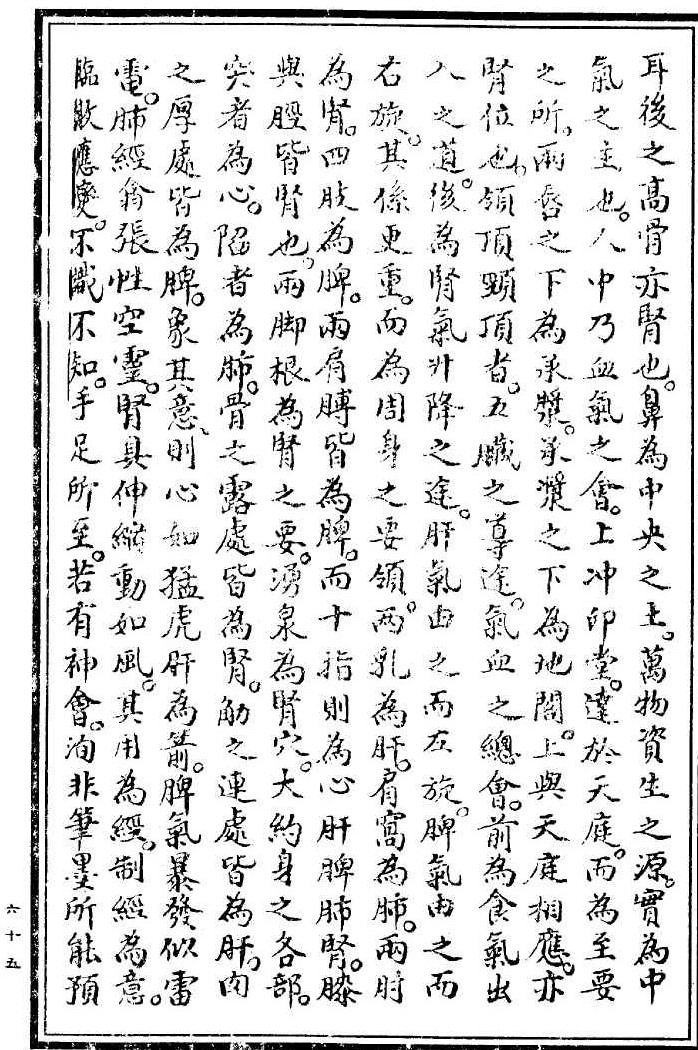 耳後之高骨亦腎也。鼻為中央之土。萬物資生之源。實為中
氣之主也。人中乃血氣之會。上冲印堂。達於天庭。而為至要
之所。兩唇之下為承漿。承漿之下為地閣。上與天庭相應。亦
腎位也。領頂頸頂者。五臟之導途。氣血之總會。前為食氣出
入之道。後為腎氣升降之途。肝氣由之而左旋。脾氣由之而
右旋。其係更重。而為周身之要領。兩乳為肝。肩窩為肺。兩肘
為腎。四肢為脾。兩肩膊皆為脾。而十指則為心肝脾肺腎。膝
與脛皆腎也。兩脚根為腎之要。湧泉為腎穴。大約身之各部。
突者為心。陷者為肺。骨之露處皆為腎。觔之連處皆為肝。肉
之厚處皆為脾。象其意、則心如猛虎肝為箭。脾氣暴發似雷
電。肺經翕張性空靈。腎具伸縮動如風。其用為經。制經為意。
臨敵應變。不識不知。手足所至。若有神會。洵非筆墨所能預
六十五